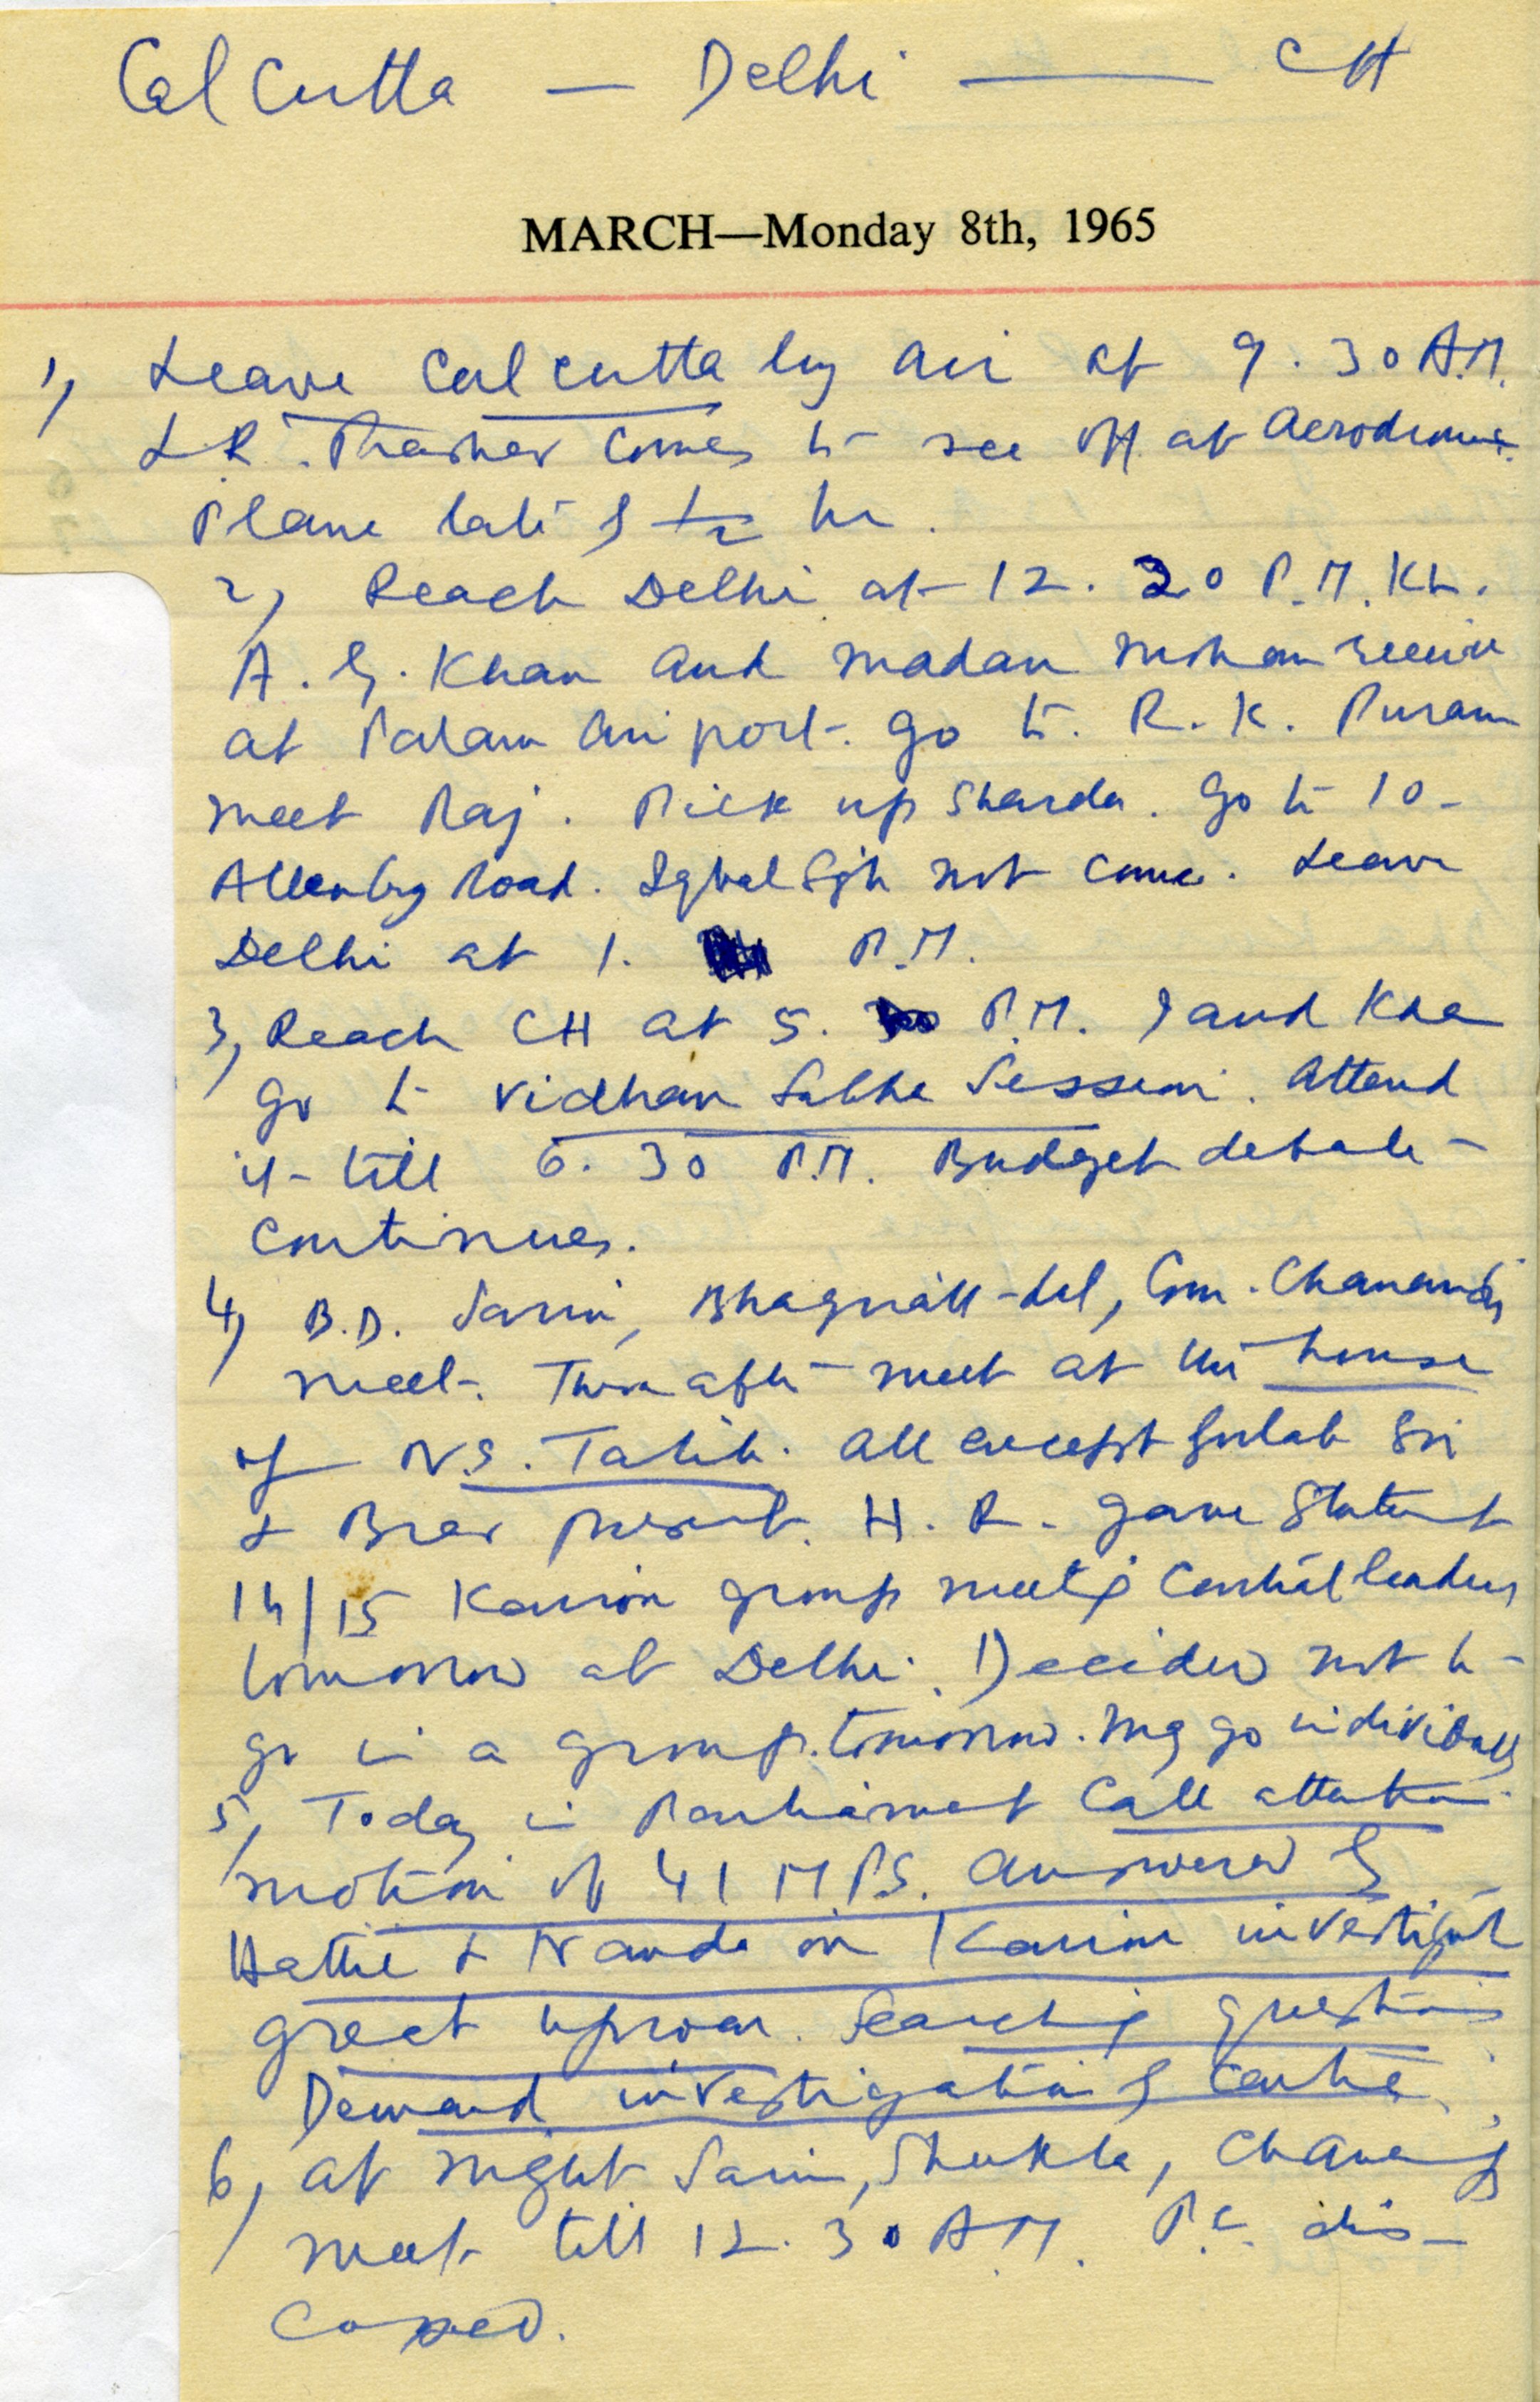 Calcutta — Delhi — CH
MARCH—Monday 8th, 1965
1, Leave Calcutta by air at 9.30 A.M.
L.R. comes to see off at Aerodrome.
Plane late by ½ hr.
2, Reach Delhi at 12.20 P.M. Kh.
A. G. Khan and Madan Mohan receive
at Palam Air port. go to R. K. Puram
meet Raj. Pick up Sharda. Go to 10-
Allenby Road. Iqbal Sgh not come. Leave
Delhi at 1. P.M.
3, Reach CH at 5. P.M. I and Kha
go to Vidhan Sabha Session. Attend
it till 6.30 P.M. Budget debate
continues.
4, B.D. Sarin, Bhagirath Lal, Com.
meet. Thereafter meet at the house
of N.S. Talib. All except Gulab Sri
& Brar present. H. R. gave statement
14/15 Kairon group meeting Central leaders
tomorrow at Delhi. Decided not to
go in a group tomorrow. May go individually
5, Today in Parliament Call attention
motion of 41 M P.S. answered by
Hathi & Nanda on Kairon
great uproar. Searching questions
Demand investigation by Centre
6, at night Sarin, Shukla,
meet till 12.30 A.M. dis-